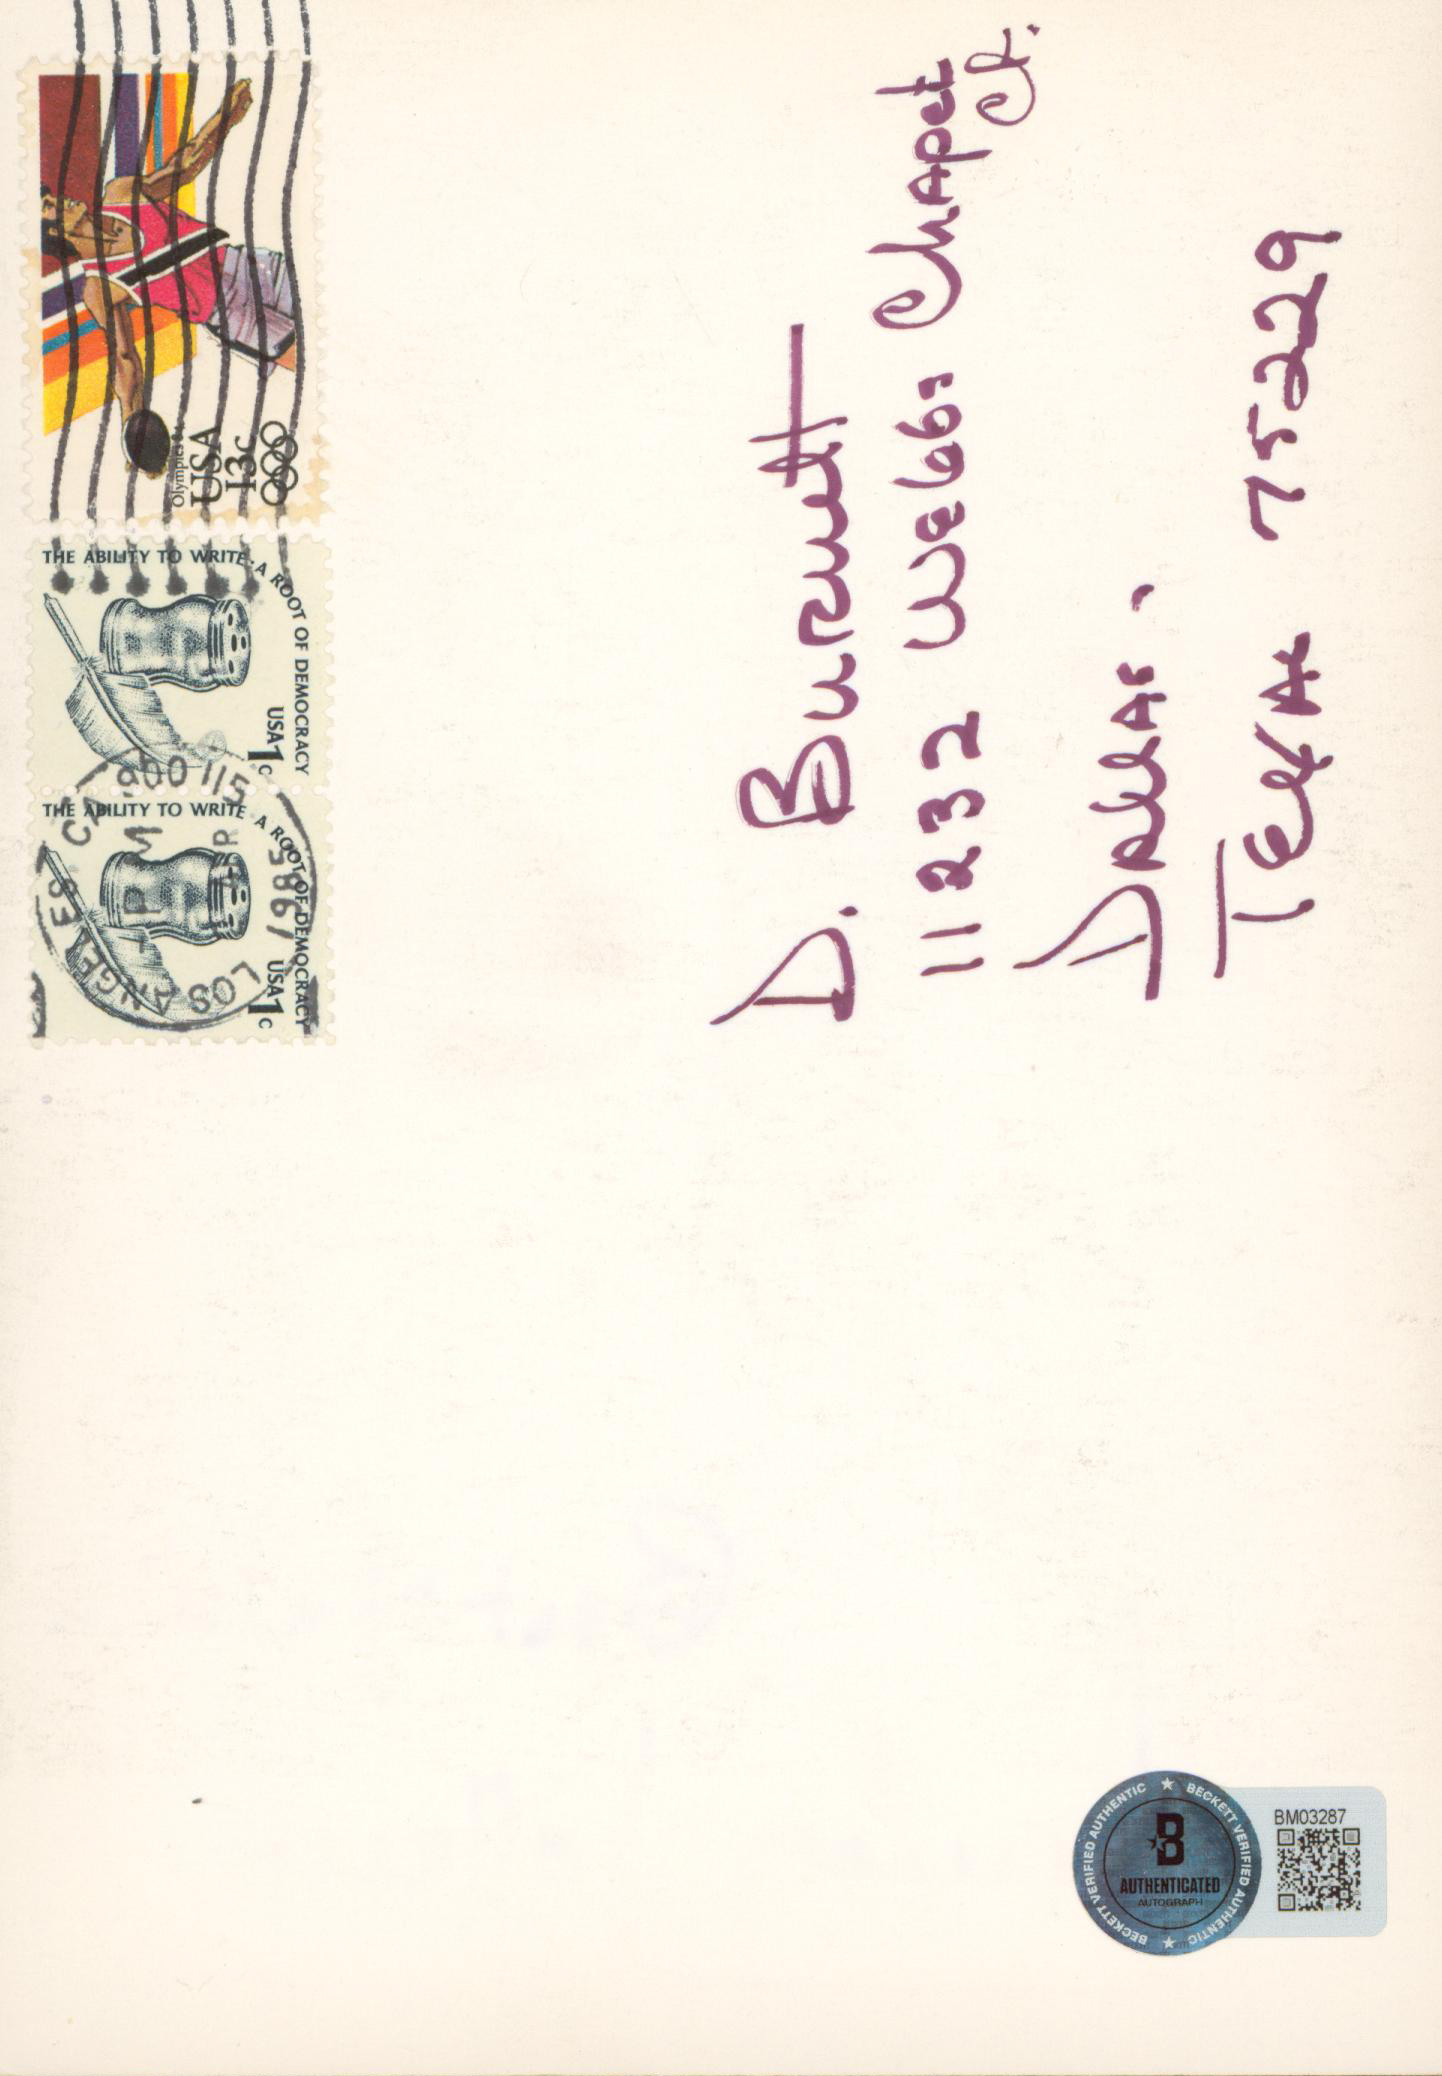 Olympics 84
USA
13c
THE ABILITY TO WRITE · A ROOT OF DEMOCRACY
USA 1c
THE ABILITY TO WRITE · A ROOT OF DEMOCRACY
USA 1c
LOS ANGELES, CA 900 115
PM
APR
1985
D. Burnett
11232 Webbs Chapel
Ct.
Dallas,
Texas 75229
BECKETT VERIFIED AUTHENTIC ★ BECKETT VERIFIED AUTHENTIC ★
B
AUTHENTICATED
AUTOGRAPH
BM03287